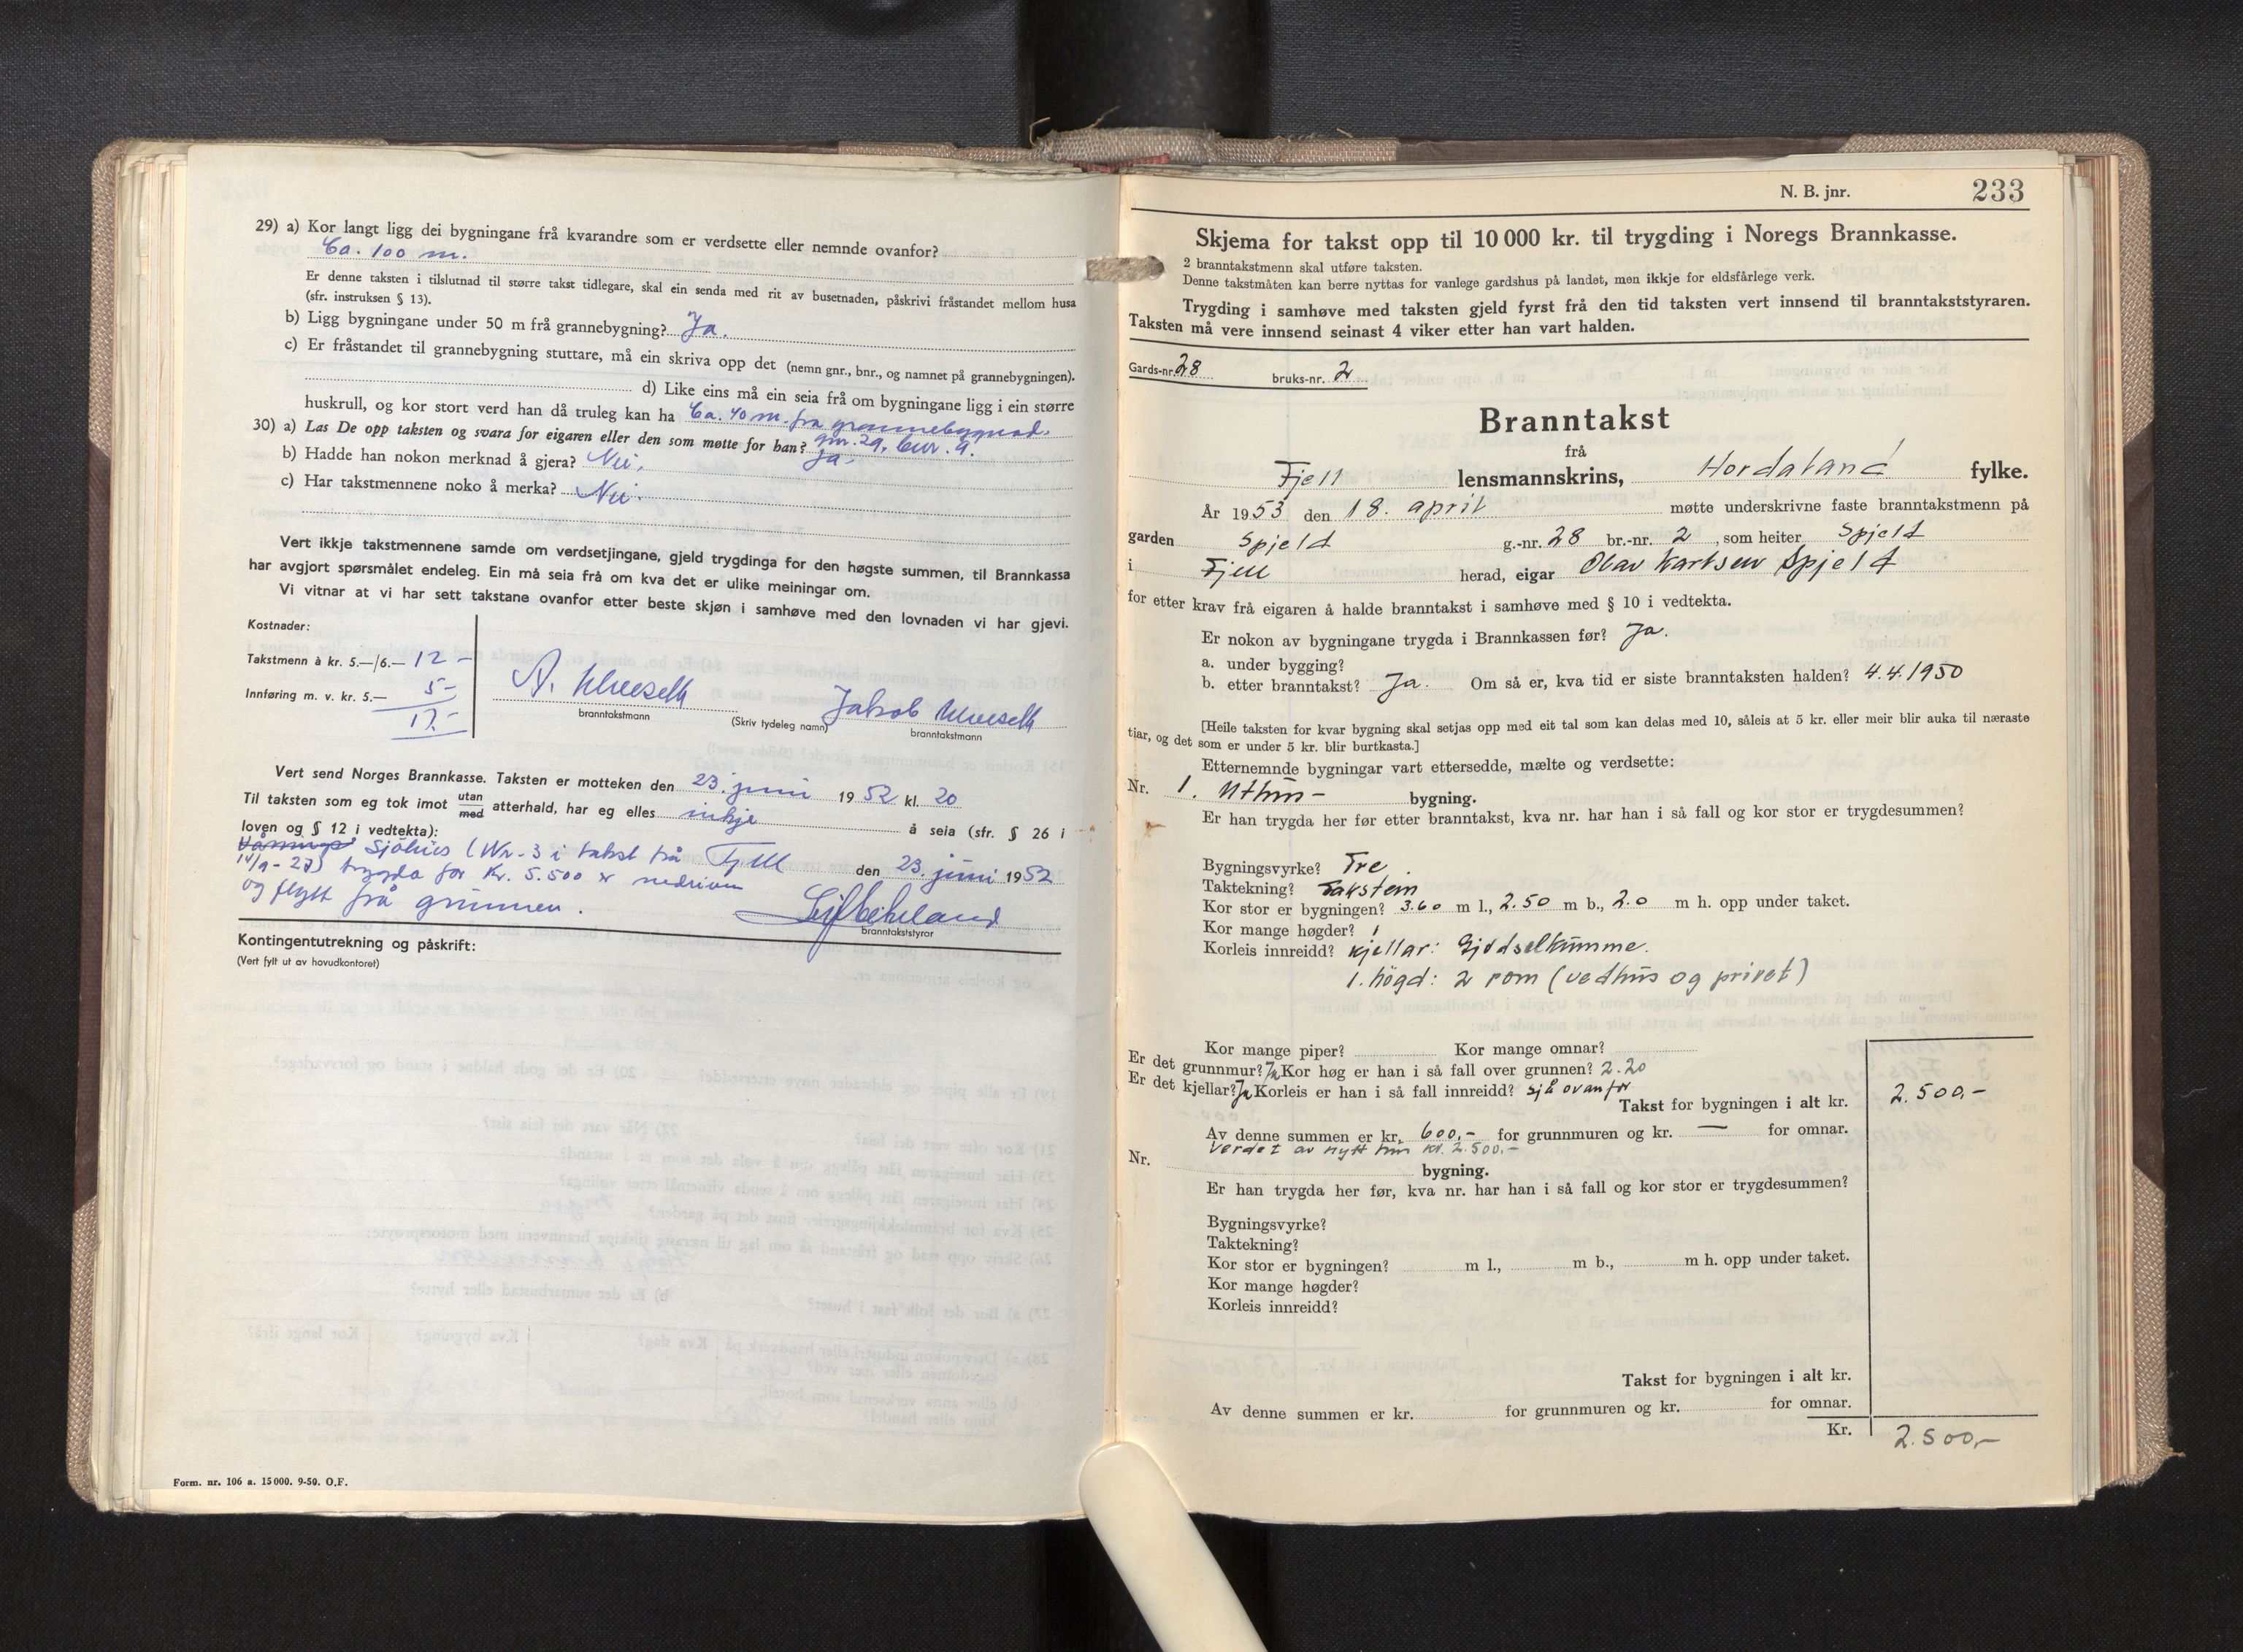 29) a) Kor langt ligg dei bygningane frå kvarandre som er verdsette eller nemnde ovanfor?
Ca. 100 m.
Er denne taksten i tilslutnad til større takst tidlegare, skal ein senda med rit av busetnaden, påskrivi fråstandet mellom husa
(sfr. instruksen § 13).
b) Ligg bygningane under 50 m frå grannebygning? Ja.
c) Er fråstandet til grannebygning stuttare, må ein skriva opp det (nemn gnr., bnr., og namnet på grannebygningen).
d) Like eins må ein seia frå om bygningane ligg i ein større
huskrull, og kor stort verd han då truleg kan ha Ca. 40 m. fra grannebygnad.
gnr. 29. bnr. 9.
30) a) Las De opp taksten og svara for eigaren eller den som møtte for han? Ja.
b) Hadde han nokon merknad å gjera? Nei.
c) Har takstmennene noko å merka? Nei.
Vert ikkje takstmennene samde om verdsetjingane, gjeld trygdinga for den høgste summen, til Brannkassa
har avgjort spørsmålet endeleg. Ein må seia frå om kva det er ulike meiningar om.
Vi vitnar at vi har sett takstane ovanfor etter beste skjøn i samhøve med den lovnaden vi har gjevi.
Kostnader:
Takstmenn à kr. 5.—/6.— 12 -
Innføring m. v. kr. 5.— 5 -
17.-
A. Ulveseth
branntakstmann
(Skriv tydeleg namn)
Jakob Ulveseth
branntakstmann
Vert send Norges Brannkasse. Taksten er motteken den 23. juni 1952 kl. 20
Til taksten som eg tok imot utan/med atterhald, har eg elles inkje å seia (sfr. § 26 i
loven og § 12 i vedtekta):
Sjøhus (Nr. 3 i takst frå Fjell den 23. juni 1952
14/9-27) trygda for kr. 5.500 er nedriven
og flytt frå grunnen.
branntakststyror
Kontingentutrekning og påskrift:
(Vert fylt ut av hovudkontoret)
Form. nr. 106 a. 15000. 9-50. O.F.
N. B. jnr. 233
Skjema for takst opp til 10 000 kr. til trygding i Noregs Brannkasse.
2 branntakstmenn skal utføre taksten.
Denne takstmåten kan berre nyttas for vanlege gardshus på landet, men ikkje for eldsfårlege verk.
Trygding i samhøve med taksten gjeld fyrst frå den tid taksten vert innsend til branntakststyraren.
Taksten må vere innsend seinast 4 viker etter han vart halden.
Gards-nr. 28 bruks-nr. 2
Branntakst
frå
Fjell lensmannskrins, Hordaland fylke.
År 1953 den 18. april møtte underskrivne faste branntakstmenn på
garden Spjeld g.-nr. 28 br.-nr. 2, som heiter Spjeld
i Fjell herad, eigar Olav Karlsen Spjeld
for etter krav frå eigaren å halde branntakst i samhøve med § 10 i vedtekta.
Er nokon av bygningane trygda i Brannkassen før? Ja.
a. under bygging?
b. etter branntakst? Ja. Om så er, kva tid er siste branntaksten halden? 4.4.1950
[Heile taksten for kvar bygning skal setjas opp med eit tal som kan delas med 10, såleis at 5 kr. eller meir blir auka til næraste
tiar, og det som er under 5 kr. blir burtkasta.]
Etternemnde bygningar vart ettersedde, mælte og verdsette:
Nr. 1. Uthus- bygning.
Er han trygda her før etter branntakst, kva nr. har han i så fall og kor stor er trygdesummen?
Bygningsvyrke? Tre.
Taktekning? Takstein
Kor stor er bygningen? 3.60 m l., 2.50 m b., 2.0 m h. opp under taket.
Kor mange høgder? 1
Korleis innreidd? Kjellar: Gjødselkumme.
1. högd: 2 rom (vedhus og privet)
Kor mange piper? Kor mange omnar?
Er det grunnmur? Ja Kor høg er han i så fall over grunnen? 2.20
Er det kjellar? Ja Korleis er han i så fall innreidd? sjå ovanfor
Takst for bygningen i alt kr. 2.500,-
Av denne summen er kr. 600,- for grunnmuren og kr. — for omnar.
Verdet av nytt hus kr. 2.500.-
Nr. bygning.
Er han trygda her før, kva nr. har han i så fall og kor stor er trygdesummen?
Bygningsvyrke?
Taktekning?
Kor stor er bygningen? m l., m b., m h. opp under taket.
Kor mange høgder?
Korleis innreidd?
Takst for bygningen i alt kr.
Av denne summen er kr. for grunnmuren og kr. for omnar.
Kr. 2.500,-